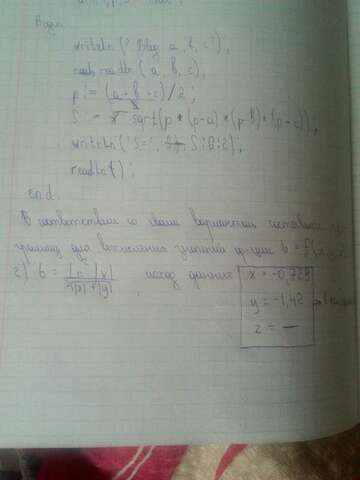 Begin
writeln('Ввод a, b, c');
readln(a, b, c);
p:=(a+b+c)/2;
S:= sqrt(p*(p-a)*(p-b)*(p-c));
writeln('S=', S:8:2);
readln();
end.
В соответствии со своим вариантом составить про
грамму для вычисления значений ф-ции b = f(x,y,z)
г) b = ln²|x| / √|x|+|y| , исход данные
x = -0,729
y = -1,42
z = —